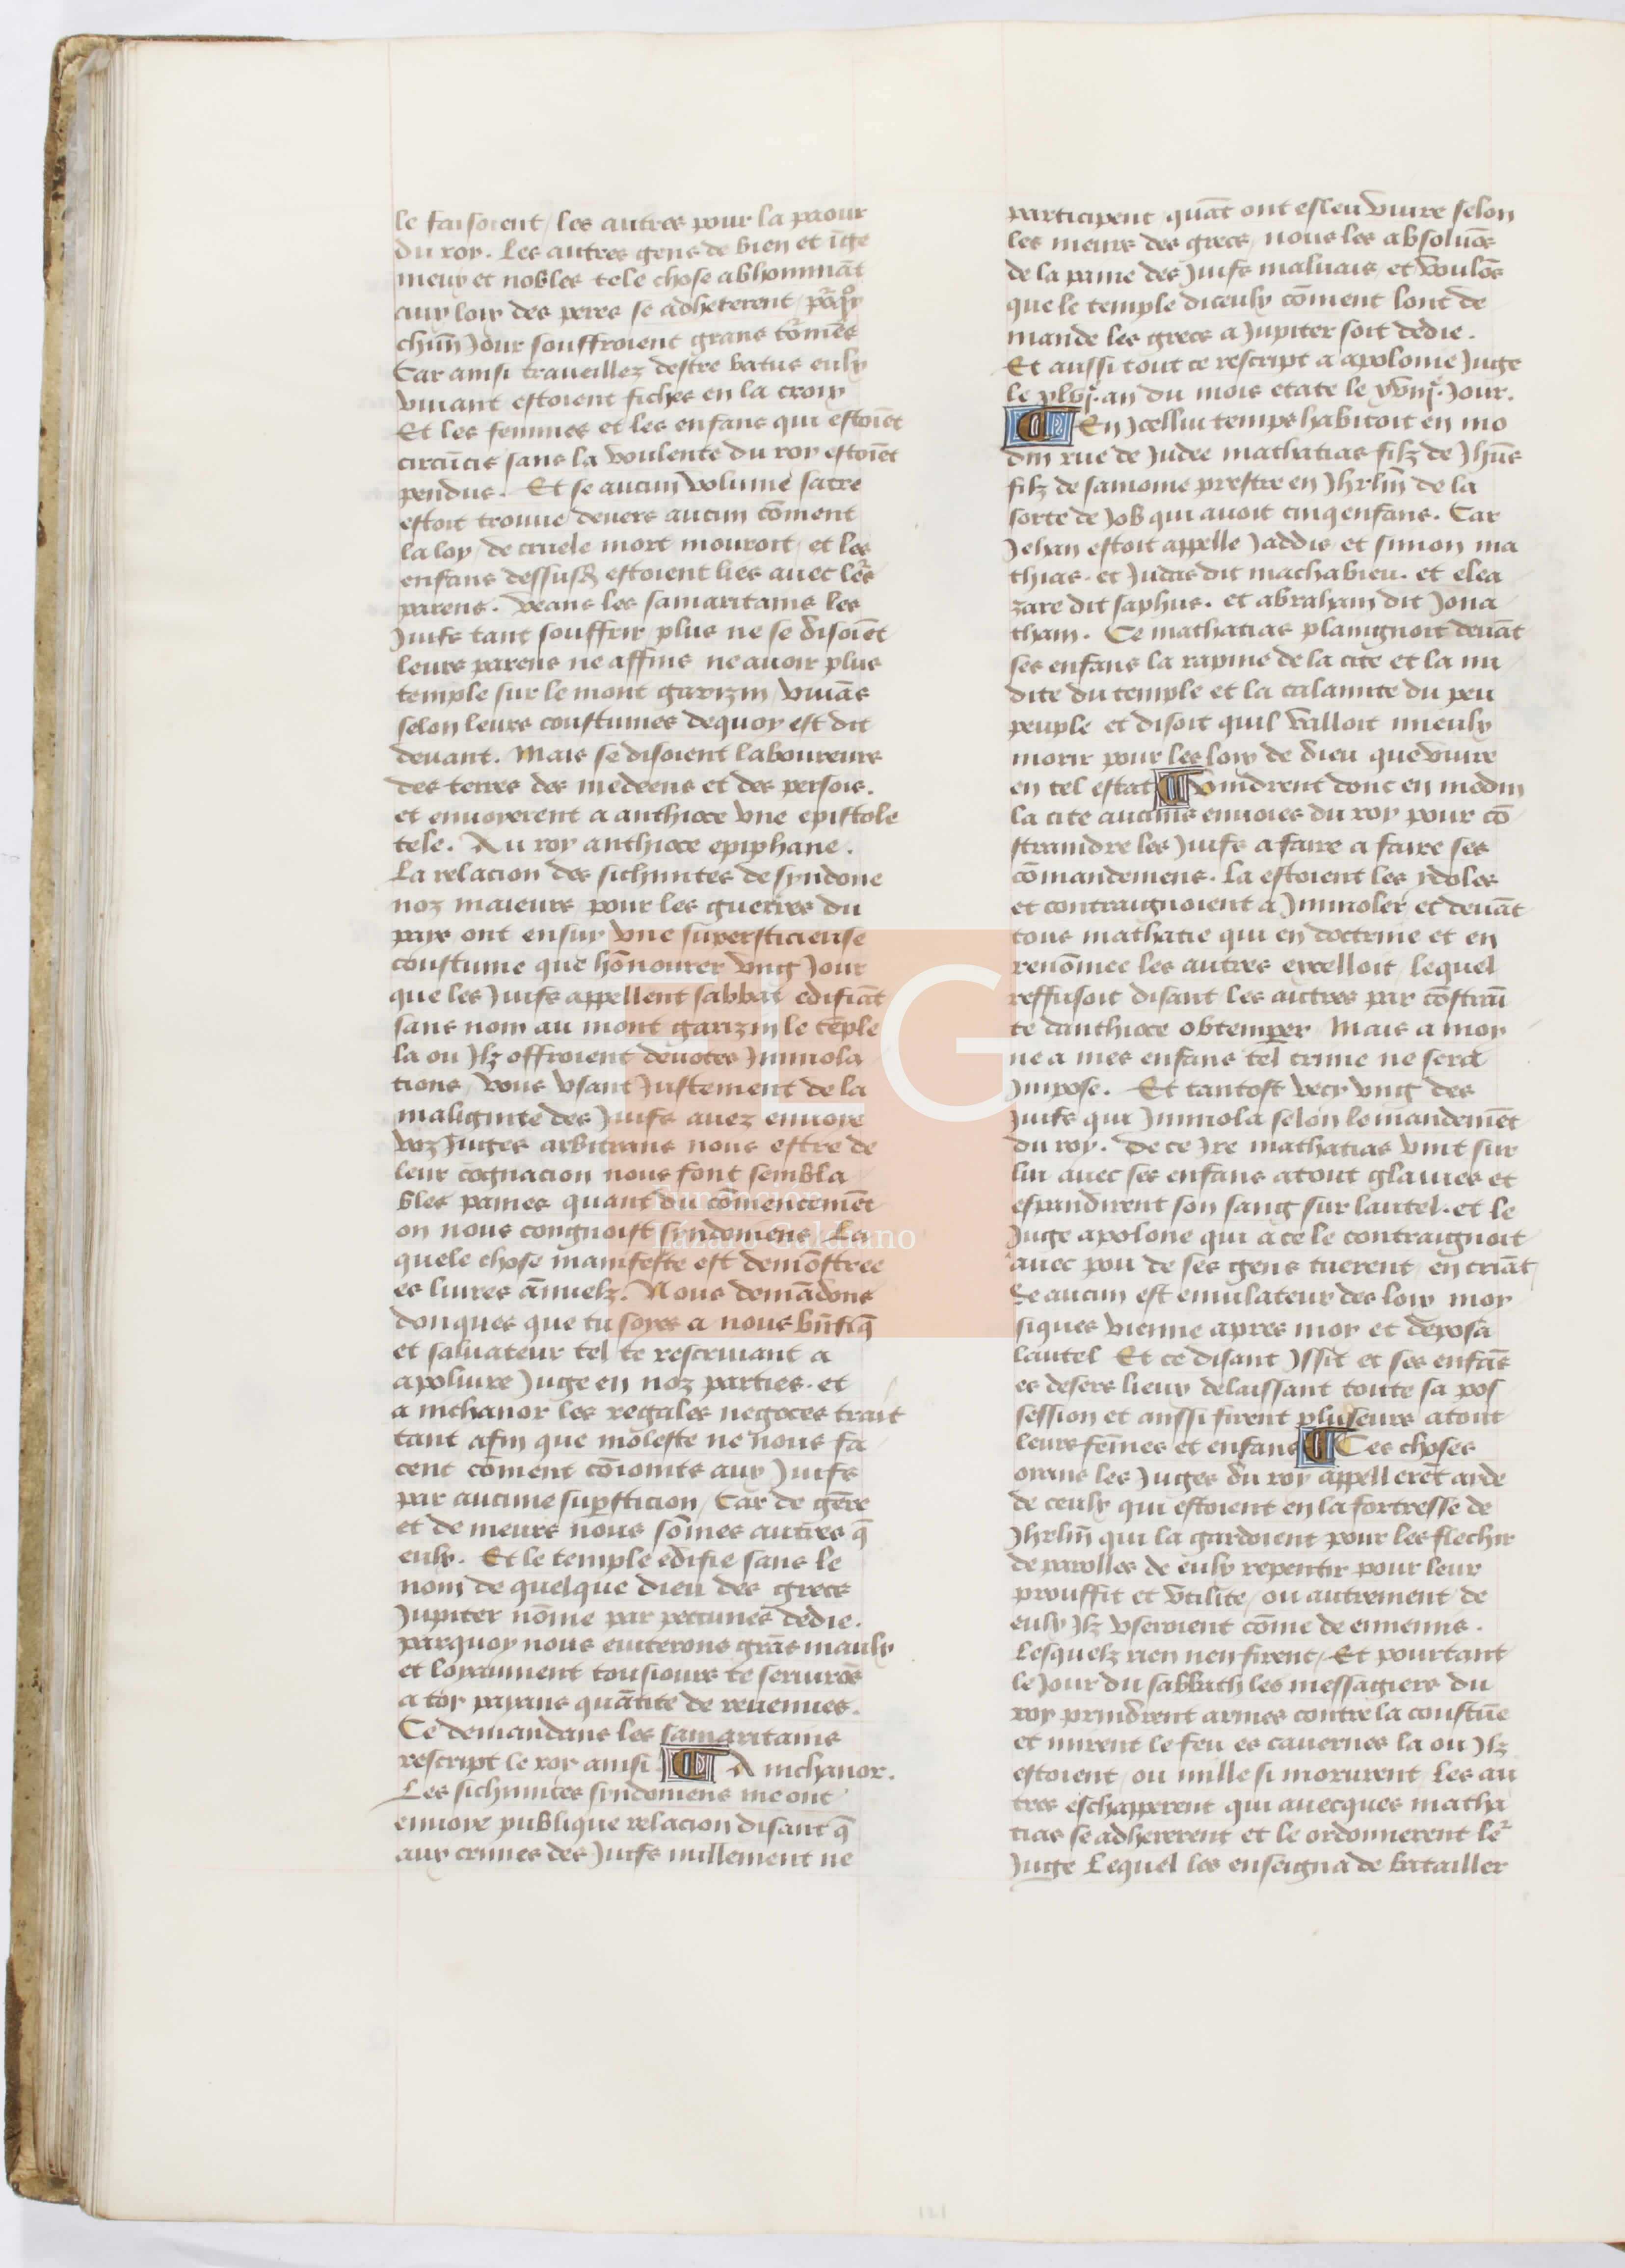 le faisoient / les autres pour la paour
du roy. Les autres gens de bien et īge
nieux et nobles tele chose abhomināt
aux loix des peres se adheterent /
chūn Jour souffroient grans tormēs
Car ainsi traueillez destre batus eulx
viuant estoient fiches en la croix
Et les femmes et les enfans qui estoiēt
circūcis sans la voulente du roy estoiēt
pendus. Et se aucun volume sacre
estoit trouue deuers aucun cōment
la loy / de cruele mort mouroit / et les
enfans dessusd estoient lies auec lers
parens. Veans les samaritains les
Juifs tant souffrir / plus ne se disoiēt
leurs parens ne affins ne auoir plus
temple sur le mont garizin / viuās
selon leurs coustumes dequoy est dit
deuant. Mais se disoient laboureurs
des terres des medeens et des persois.
et enuoyerent a anthioce vne epistole
tele. Au roy anthioce epiphane.
La relacion des sichimites de syndone
noz maieurs pour les guerres du
pays ont ensuy vne supersticieuse
coustume que hōnourer vng Jour
que les Juifs appellent sabbat edifiāt
sans nom au mont garizin le tēple
la ou Jlz offroient deuotes Jmmola
tions / vous vsant Justement de la
malignite des Juifs auez enuoye
voz Juges arbitrans nous estre de
leur cognacion nous font sembla
bles paines quant du cōmencemēt
on nous congnoist syndoniens La
quele chose manifeste est demōstree
es liures ānuelz. Nous demādons
donques que tu soyes a nous bn̄fiq̄
et saluateur tel te rescriuant a
apoliure Juge en noz parties. et
a nichanor les regales negoces trait
tant afin que moleste ne nous fa
cent cōment cōioints aux Juifs
par aucune sup̄sticion / Car de gēre
et de meurs nous sōmes autres q̄
eulx. Et le temple edifie sans le
nom de quelque dieu des grecs
Jupiter nōme par peccunes dedie.
parquoy nous euiterons grās maulx
et loyaument tousiours te seruirōs
a toy payans quātite de reuenues.
Ce demandans les samaritains
rescript le roy ainsi A nichanor.
Les sichimites syndoniens me ont
enuoye publique relacion disant q̄
aux crimes des Juifs nullement ne
participent / quāt ont esleu viure selon
les meurs des grecs / nous les absoluōs
de la paine des Juifs maluais / et voulōs
que le temple diceulx cōment lont de
mande les grecs a Jupiter soit dedie.
Et aussi tout ce rescript a apolonie Juge
le xlvj. an du mois etate le xviij. Jour.
En Jcelluy temps habitoit en mo
din rue de Judee mathatias filz de Jhūs
filz de samoine prestre en Jhrlm̄ de la
sorte de Job qui auoit cinq enfans. Car
Jehan estoit appelle Jaddis et simon ma
thias. et Judas dit machabieu. et elea
zare dit saphus. et abraham dit Jona
tham. Ce mathatias plaingnoit deuāt
ses enfans la rapine de la cite et la nu
dite du temple et la calamite du peu
peuple et disoit quil valloit mieulx
morir pour les loix de dieu que viure
en tel estat Vindrent donc en modin
la cite aucuns enuoies du roy pour cō
straindre les Juifs a faire a faire ses
cōmandemens. La estoient les ydoles
et contraignoient a Jmmoler et deuāt
tous mathatie qui en doctrine et en
renōmee les autres excelloit / lequel
reffusoit disant les autres par cōstrain
te danthioce obtemper Mais a moy
ne a mes enfans tel crime ne sera
Jmpose. Et tantost vecy vng des
Juifs qui Jmmola selon le mandemēt
du roy. De ce Jre mathatias vint sur
lui auec ses enfans atout glaiues et
espandirent son sang sur lautel. et le
Juge apolone qui a ce le contraignoit
auec pou de ses gens tuerent / en criāt /
Se aucun est emulateur des loix moy
siques vienne apres moy et deposa
lautel Et ce disant Jssit et ses enfās
es desers lieux delaissant toute sa pos
session et aussi firent pluseurs atout
leurs fēmes et enfans Ces choses
oyans les Juges du roy appellerēt aide
de ceulx qui estoient en la fortresse de
Jhrlm̄ qui la gardoient pour les flechir
de parolles de eulx repentir pour leur
prouffit et vtilite / ou autrement de
eulx Jlz vseroient cōme de ennemis.
Lesquelz rien nen firent / Et pourtant
le Jour du sabbath les messagiers du
roy prindrent armes contre la coustūe
et mirent le feu es cauernes la ou Jlz
estoient / ou mille si morurent / Les au
tres eschapperent qui auecques matha
tias se adhererent et le ordonnerent ler
Juge Lequel les enseigna de batailler
Fundación
Lázaro Galdiano